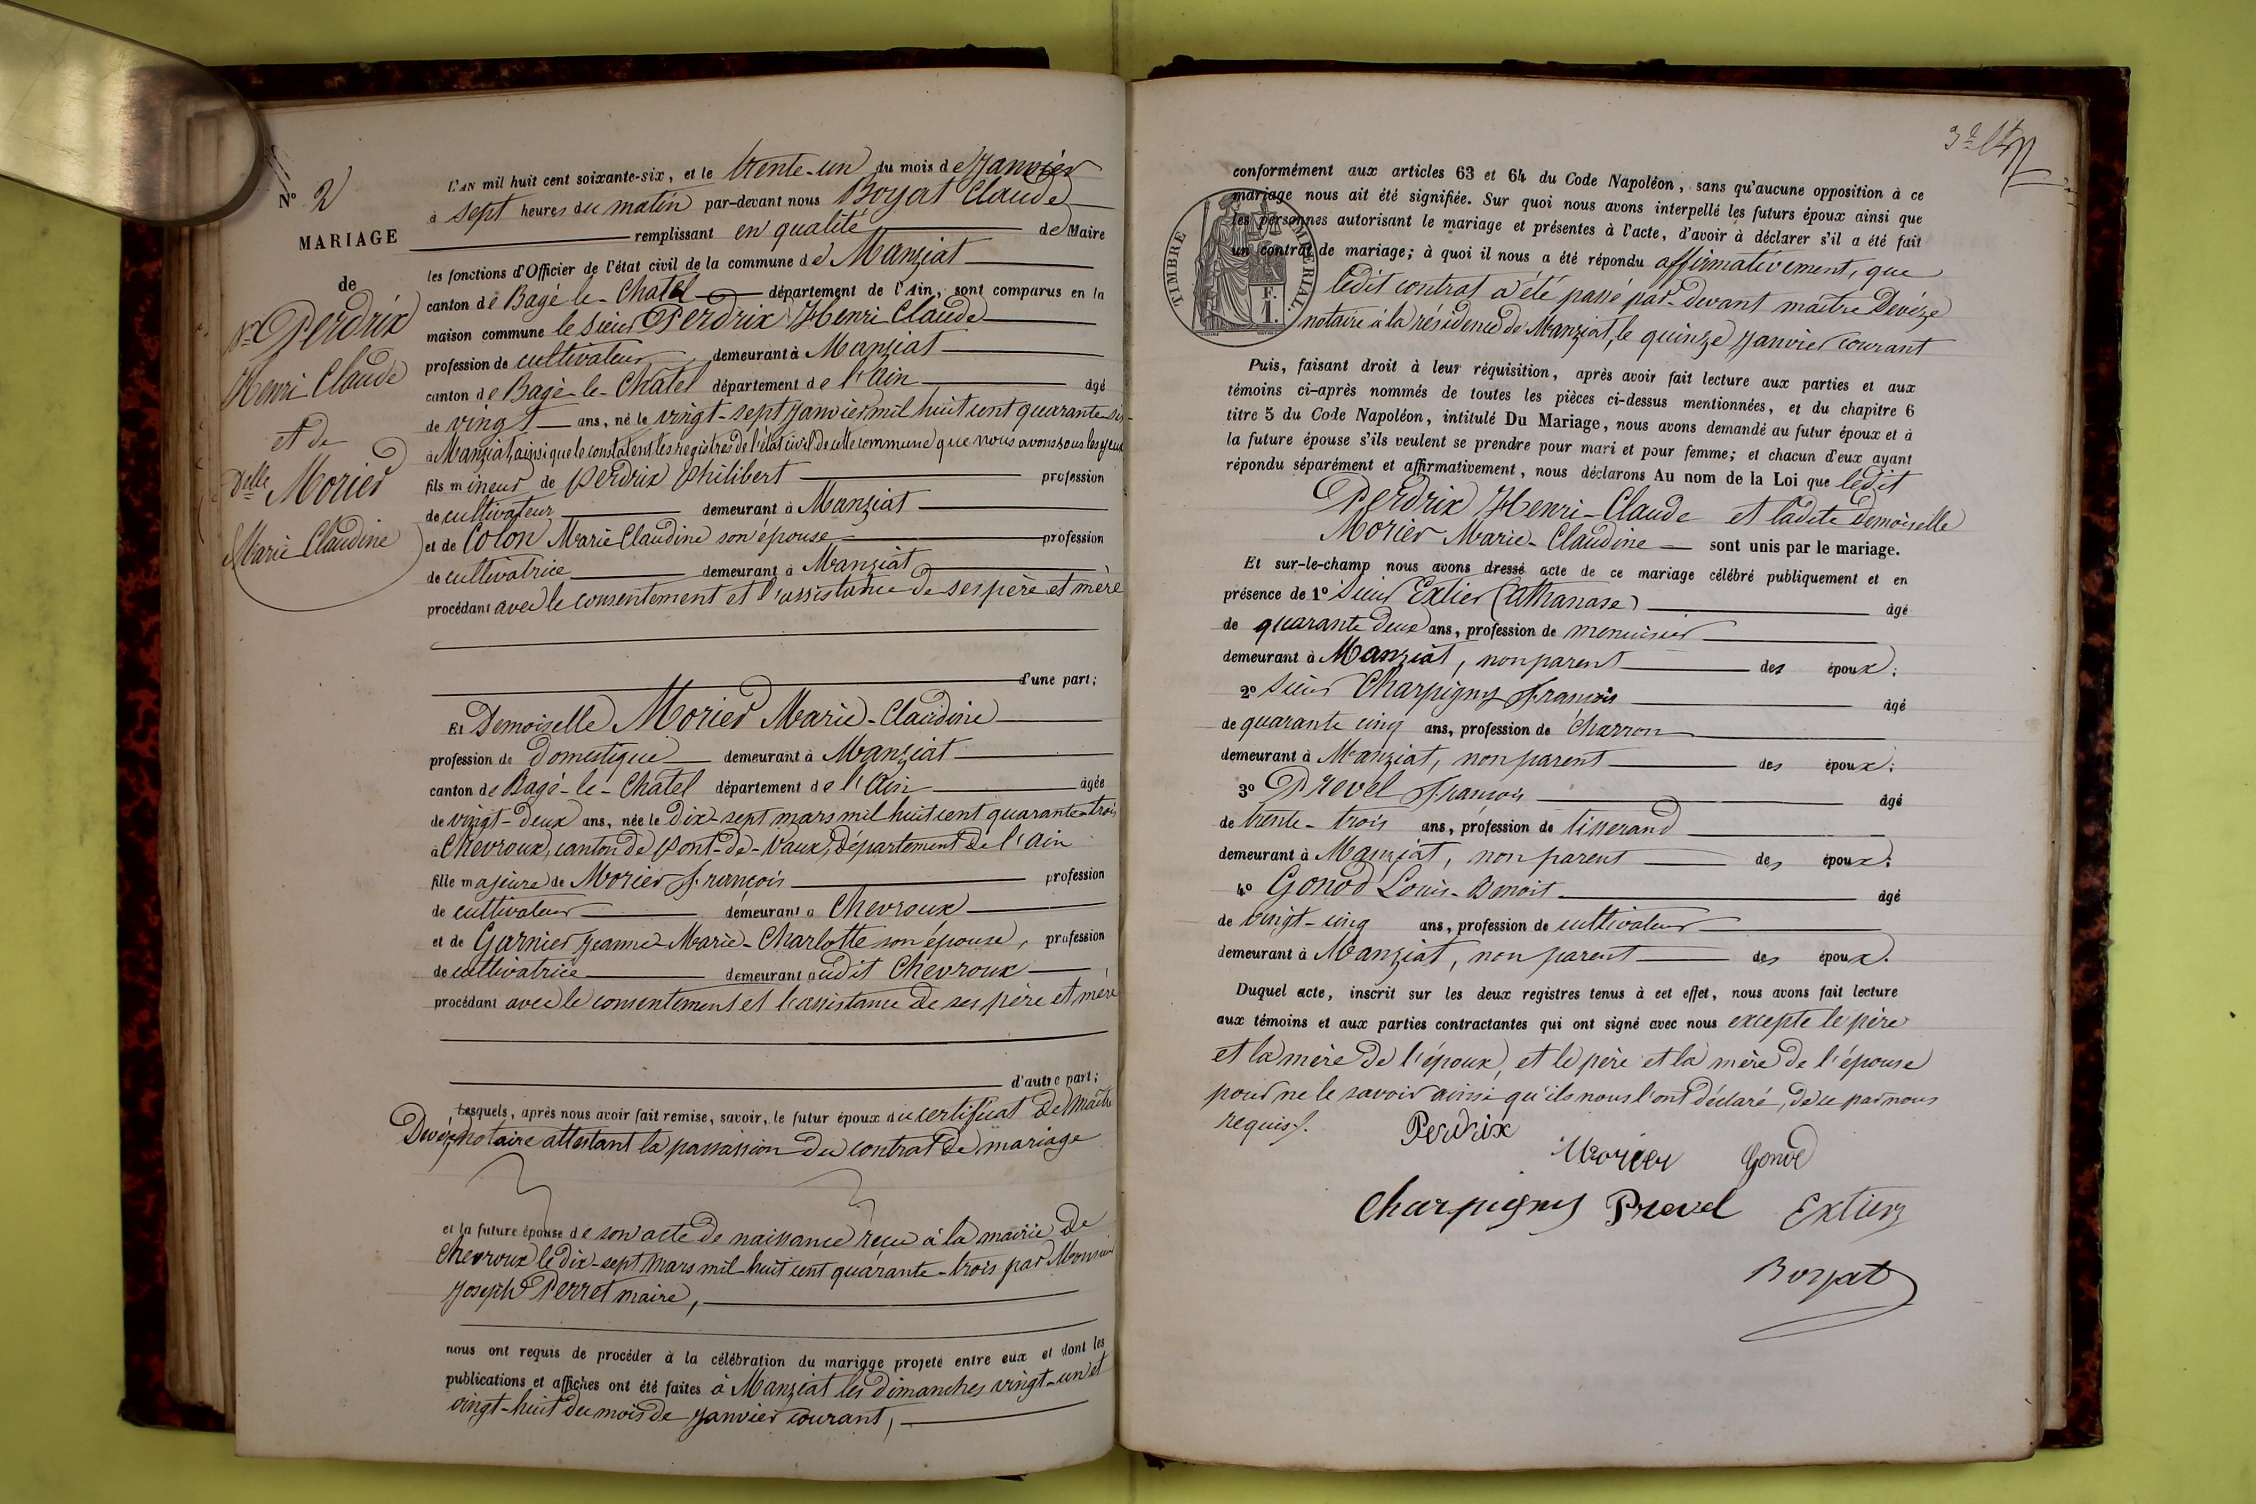 N° 2
MARIAGE
de
Sr Perdrix
Henri Claude
et de
Delle Morier
Marie Claudine
L'AN mil huit cent soixante-six, et le trente-un du mois de Janvier
à sept heures du matin par-devant nous Boyat Claude
remplissant en qualité de Maire
les fonctions d'Officier de l'état civil de la commune de Manziat
canton de Bagé-le-Chatel département de l'Ain, sont comparus en la
maison commune le sieur Perdrix Henri Claude
profession de cultivateur demeurant à Manziat
canton de Bagé-le-Chatel département de l'Ain âgé
de vingt ans, né le vingt-sept Janvier mil huit cent quarante-six
à Manziat, ainsi que le constatent les registres de l'état civil de cette commune que nous avons sous les yeux
fils mineur de Perdrix Philibert profession
de cultivateur demeurant à Manziat
et de Colon Marie Claudine son épouse profession
de cultivatrice demeurant à Manziat
procédant avec le consentement et l'assistance de ses père et mère
d'une part;
Et Demoiselle Morier Marie-Claudine
profession de domestique demeurant à Manziat
canton de Bagé-le-Chatel département de l'Ain âgée
de vingt-deux ans, née le Dix-sept mars mil huit cent quarante-trois
à Chevroux, canton de Pont-de-Vaux, département de l'Ain
fille majeure de Morier François profession
de cultivateur demeurant à Chevroux
et de Garnier Jeanne-Marie-Charlotte son épouse, profession
de cultivatrice demeurant audit Chevroux
procédant avec le consentement et l'assistance de ses père et mère
d'autre part;
Lesquels, après nous avoir fait remise, savoir, le futur époux du certificat de Maître
Devèze notaire attestant la passassion du contrat de mariage
et la future épouse de son acte de naissance reçu à la mairie de
Chevroux le dix-sept Mars mil-huit cent quarante-trois par Monsieur
Joseph Perret maire,
nous ont requis de procéder à la célébration du mariage projeté entre eux et dont les
publications et affiches ont été faites à Manziat les dimanches vingt-un et
vingt-huit du mois de Janvier courant,
conformément aux articles 63 et 64 du Code Napoléon, sans qu'aucune opposition à ce
mariage nous ait été signifiée. Sur quoi nous avons interpellé les futurs époux ainsi que
les personnes autorisant le mariage et présentes à l'acte, d'avoir à déclarer s'il a été fait
un contrat de mariage; à quoi il nous a été répondu affirmativement, que
TIMBRE IMPÉRIAL.
F.
1.
ledit contrat a été passé par-devant maître Devèze
notaire à la résidence de Manziat, le quinze Janvier courant
Puis, faisant droit à leur réquisition, après avoir fait lecture aux parties et aux
témoins ci-après nommés de toutes les pièces ci-dessus mentionnées, et du chapitre 6
titre 5 du Code Napoléon, intitulé Du Mariage, nous avons demandé au futur époux et à
la future épouse s'ils veulent se prendre pour mari et pour femme; et chacun d'eux ayant
répondu séparément et affirmativement, nous déclarons Au nom de la Loi que ledit
Perdrix Henri-Claude et ladite Demoiselle
Morier Marie-Claudine sont unis par le mariage.
Et sur-le-champ nous avons dressé acte de ce mariage célébré publiquement et en
présence de 1° sieur Extier (Athanase) âgé
de quarante deux ans, profession de menuisier
demeurant à Manziat, non parent des époux;
2° sieur Charpigny François âgé
de quarante cinq ans, profession de Charron
demeurant à Manziat, non parent des époux;
3° Prevel François âgé
de trente-trois ans, profession de tisserand
demeurant à Manziat, non parent des époux;
4° Gonod Louis-Benoit âgé
de vingt-cinq ans, profession de cultivateur
demeurant à Manziat, non parent des époux.
Duquel acte, inscrit sur les deux registres tenus à cet effet, nous avons fait lecture
aux témoins et aux parties contractantes qui ont signé avec nous excepte le père
et la mère de l'époux, et le père et la mère de l'épouse
pour ne le savoir ainsi qu'ils nous l'ont déclaré, de ce par nous
requis.
Perdrix
Morier Gonod
Charpigny Prevel Extier
Boyat